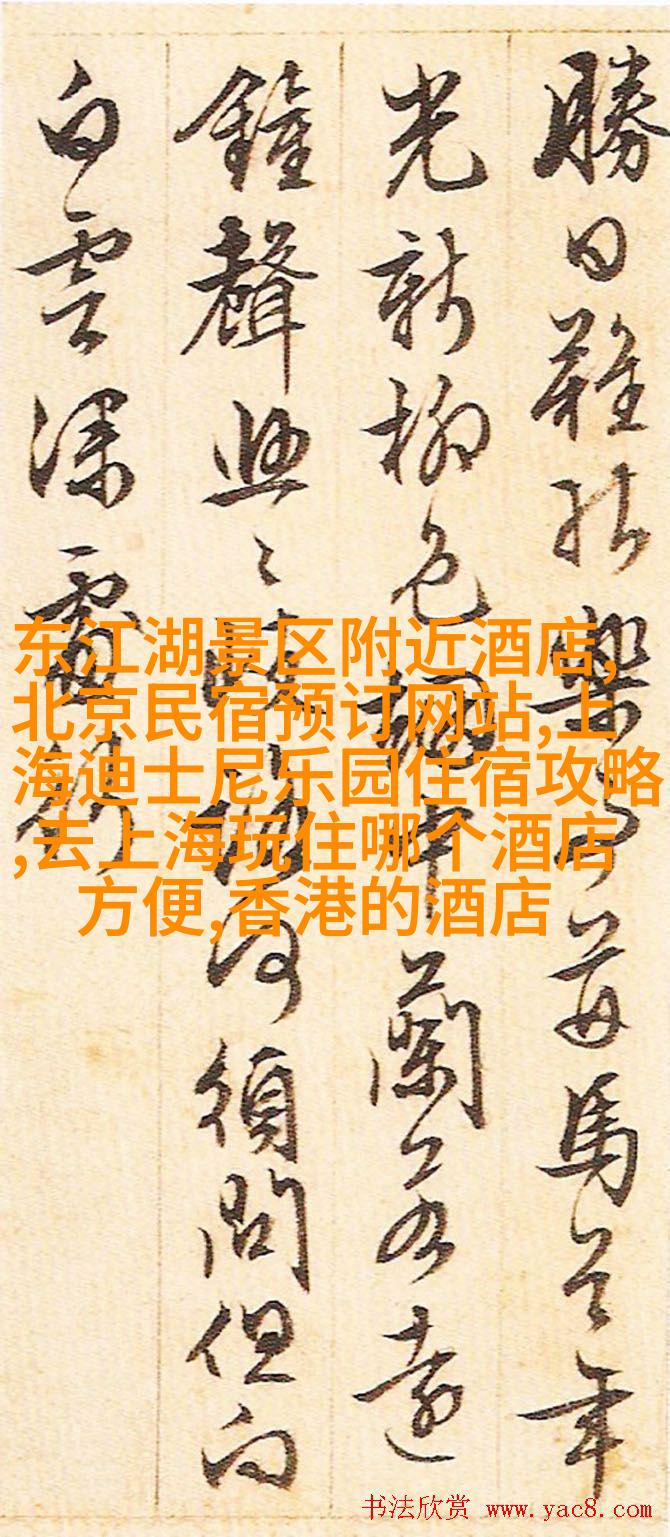 勝日難樂馬年
光新柳色蘭若遠
鐘聲何須問但向
白雲深處
东江湖景区附近酒店,
北京民宿预订网站,上
海迪士尼乐园住宿攻略
,去上海玩住哪个酒店
方便,香港的酒店
书法欣赏 www.yac8.com